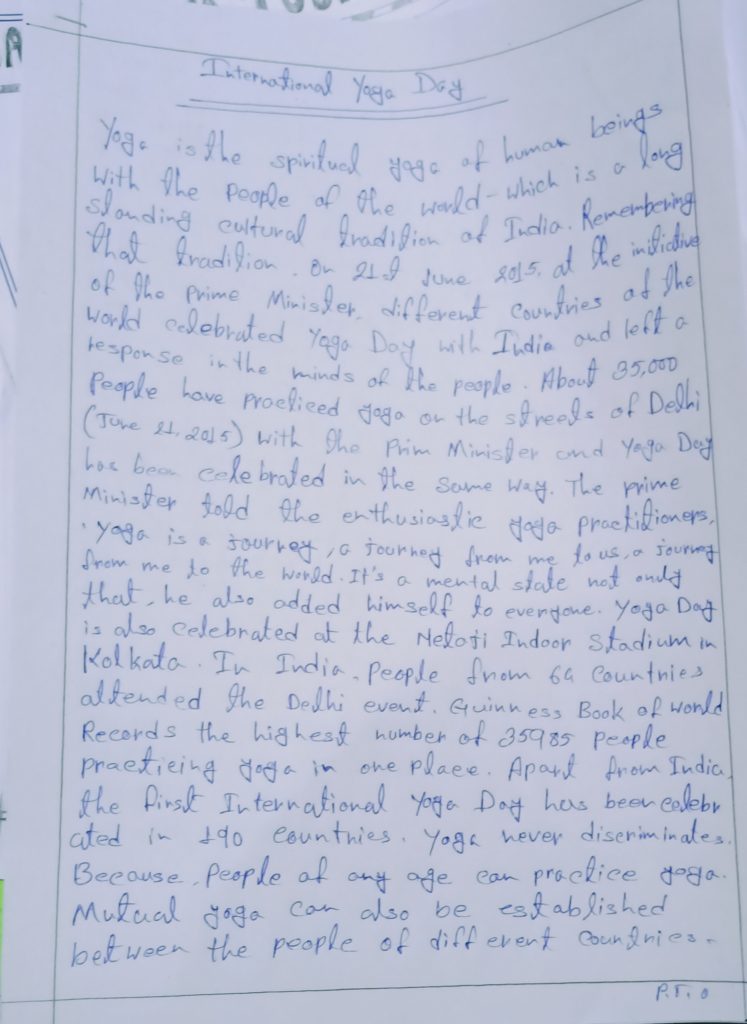 International Yoga Day
Yoga is the spiritual yoga of human beings
with the people of the world - which is a long
standing cultural tradition of India. Remembering
that tradition. On 21st June 2015, at the initiative
of the Prime Minister, different countries of the
world celebrated Yoga Day with India and left a
response in the minds of the people. About 35,000
people have practiced yoga on the streets of Delhi
(June 21, 2015) with the Prim Minister and Yoga Day
has been celebrated in the same way. The prime
Minister told the enthusiastic yoga practitioners,
'Yoga is a journey, a journey from me to us, a journey
from me to the world. It's a mental state not only
that, he also added himself to everyone. Yoga Day
is also celebrated at the Netaji Indoor Stadium in
Kolkata. In India, People from 64 countries
attended the Delhi event. Guinness Book of World
Records the highest number of 35985 people
practicing yoga in one place. Apart from India,
the first International Yoga Day has been celebr
ated in 190 countries. Yoga never discriminates.
Because, People of any age can practice yoga.
Mutual yoga can also be established
between the people of different countries.
P.T.O